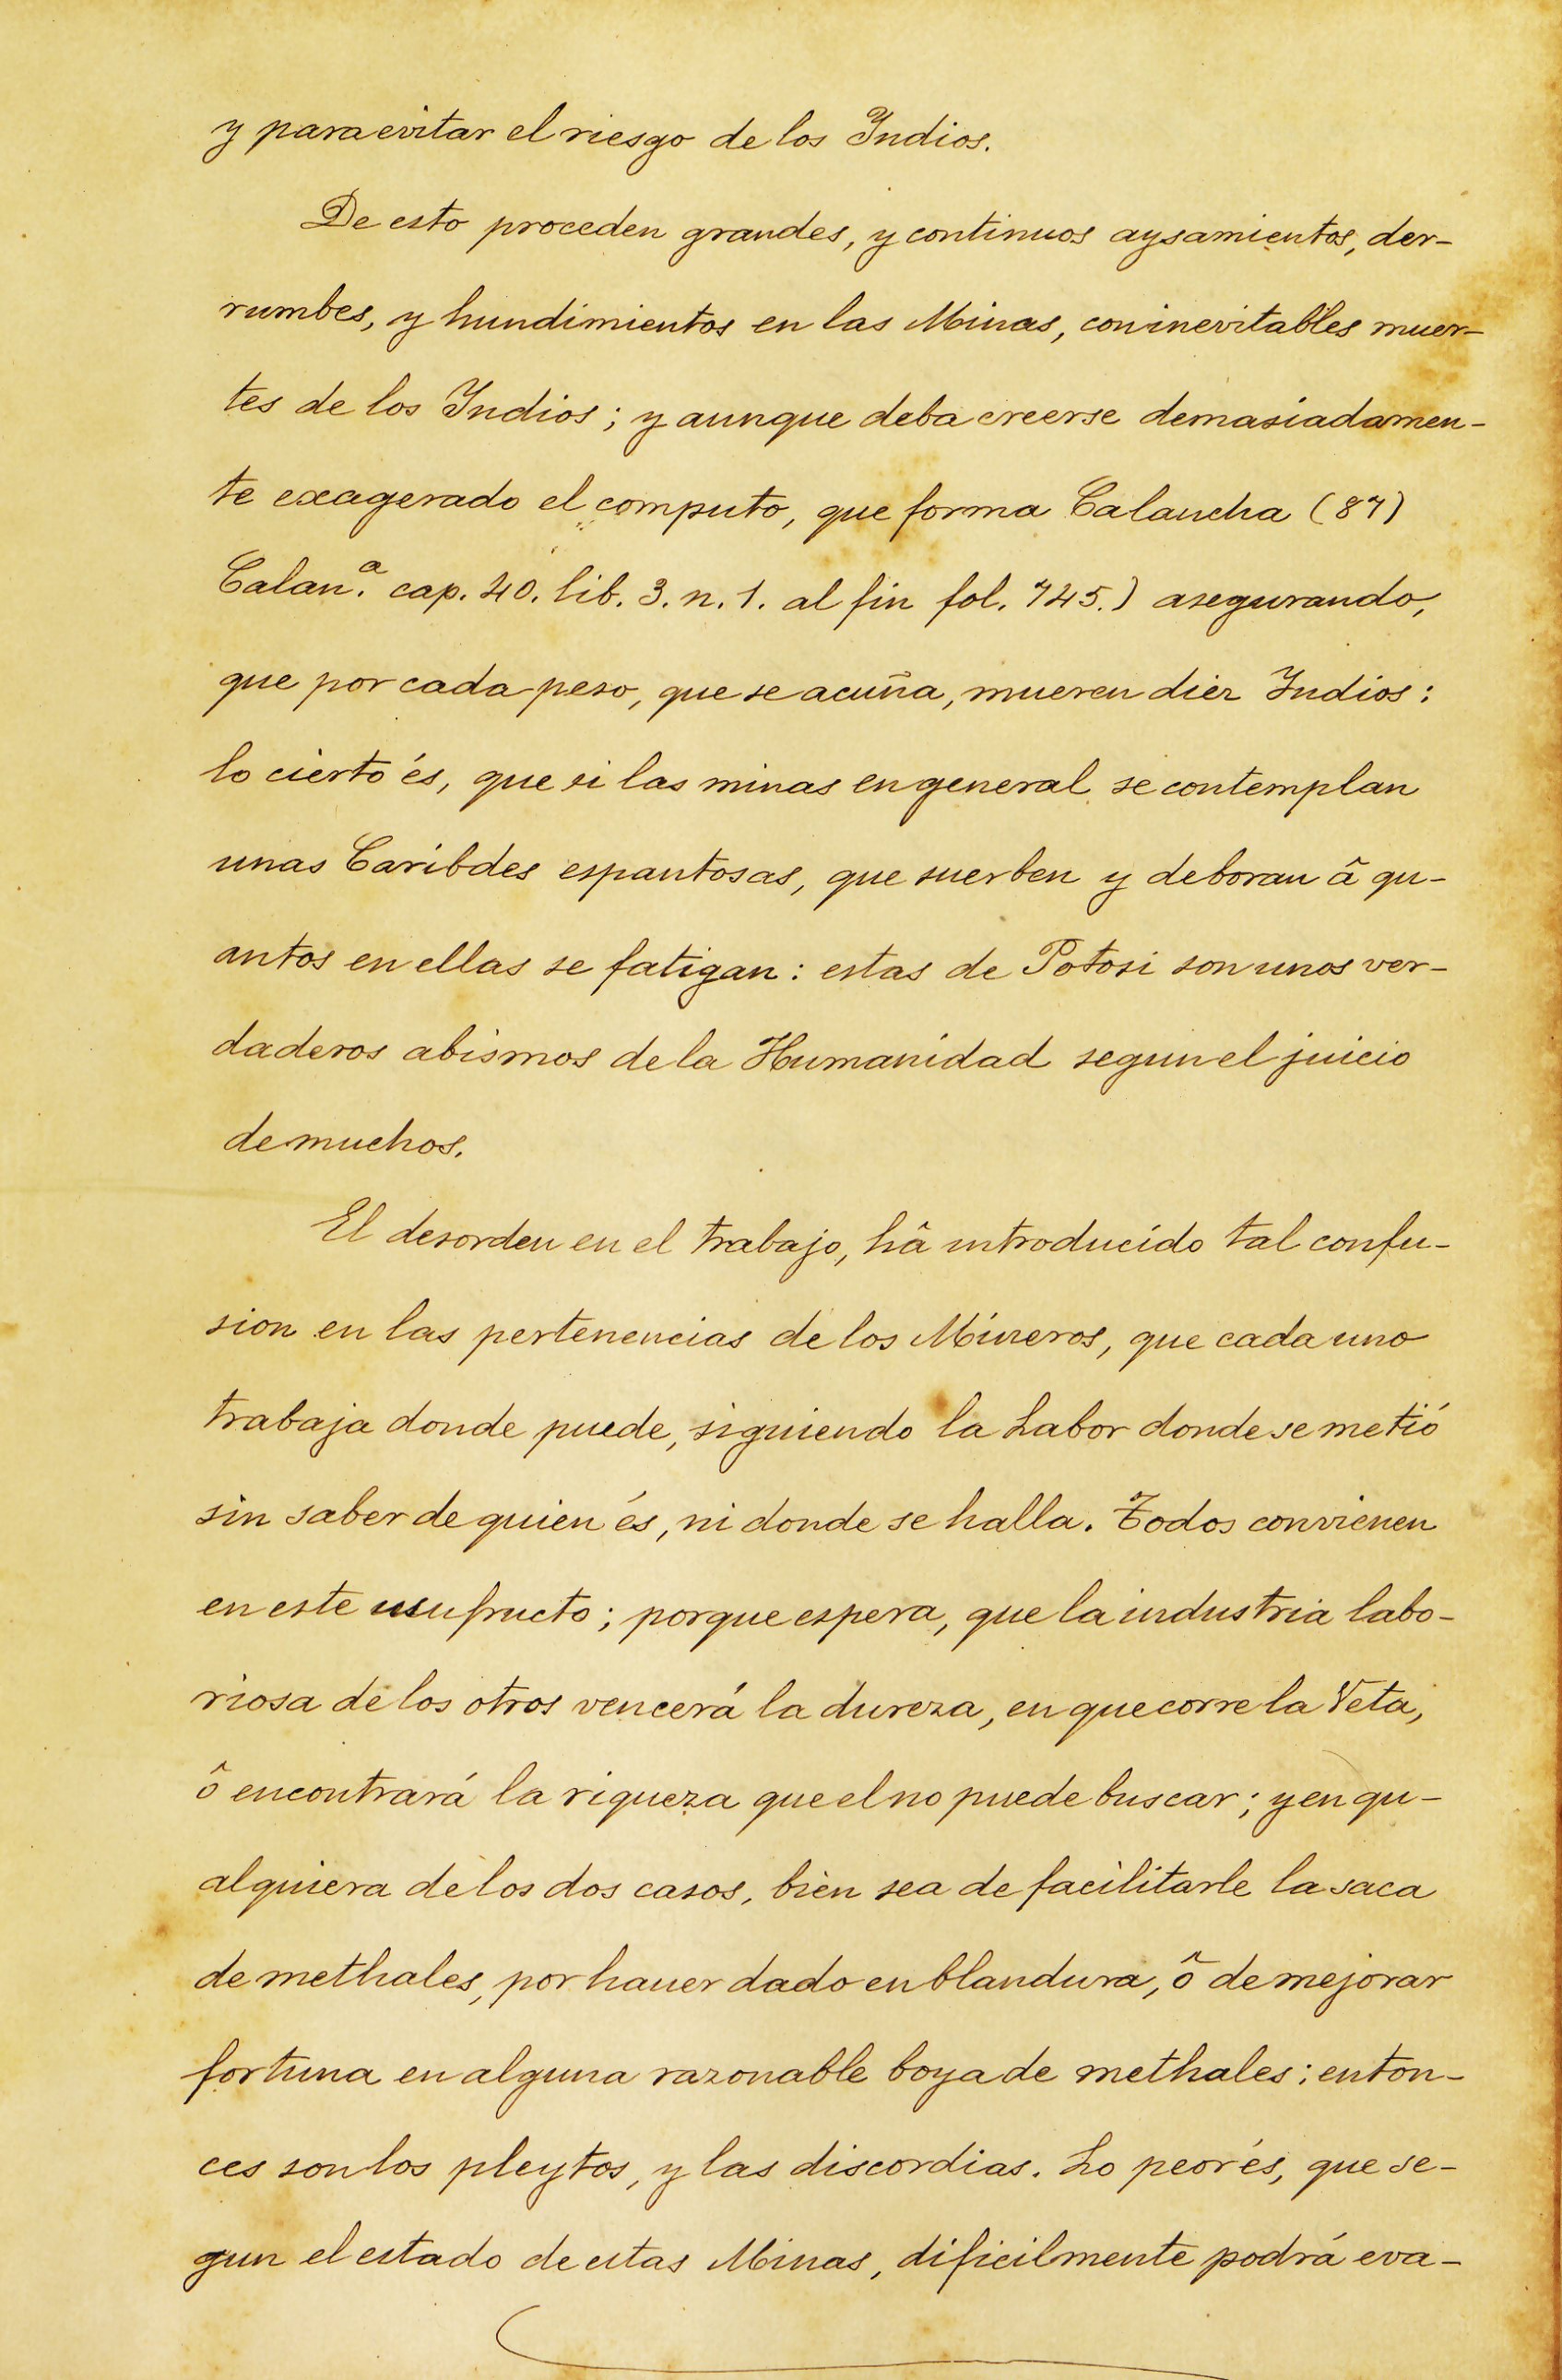 y para evitar el riesgo de los Indios.
De esto proceden grandes, y continuos aysamientos, der-
rumbes, y hundimientos en las Minas, con inevitables muer-
tes de los Indios; y aunque deba creerse demasiadamen-
te exagerado el computo, que forma Calancha (87)
Calan.ª cap. 40. lib. 3. n. 1. al fin fol. 745.) asegurando,
que por cada peso, que se acuña, mueren diez Indios:
lo cierto és, que si las minas en general se contemplan
unas Caribdes espantosas, que suerben y deboran â qu-
antos en ellas se fatigan: estas de Potosi son unos ver-
daderos abismos de la Humanidad segun el juicio
de muchos.
El desorden en el trabajo, hâ introducido tal confu-
sion en las pertenencias de los Mineros, que cada uno
trabaja donde puede, siguiendo la Labor donde se metió
sin saber de quien és, ni donde se halla. Todos convienen
en este usufructo; porque espera, que la industria labo-
riosa de los otros vencerá la dureza, en que corre la Veta,
ô encontrará la riqueza que el no puede buscar; y en qu-
alquiera de los dos casos, bien sea de facilitarle la saca
de methales, por hauer dado en blandura, ô de mejorar
fortuna en alguna razonable boya de methales: enton-
ces son los pleytos, y las discordias. Lo peor és, que se-
gun el estado de estas Minas, dificilmente podrá eva-